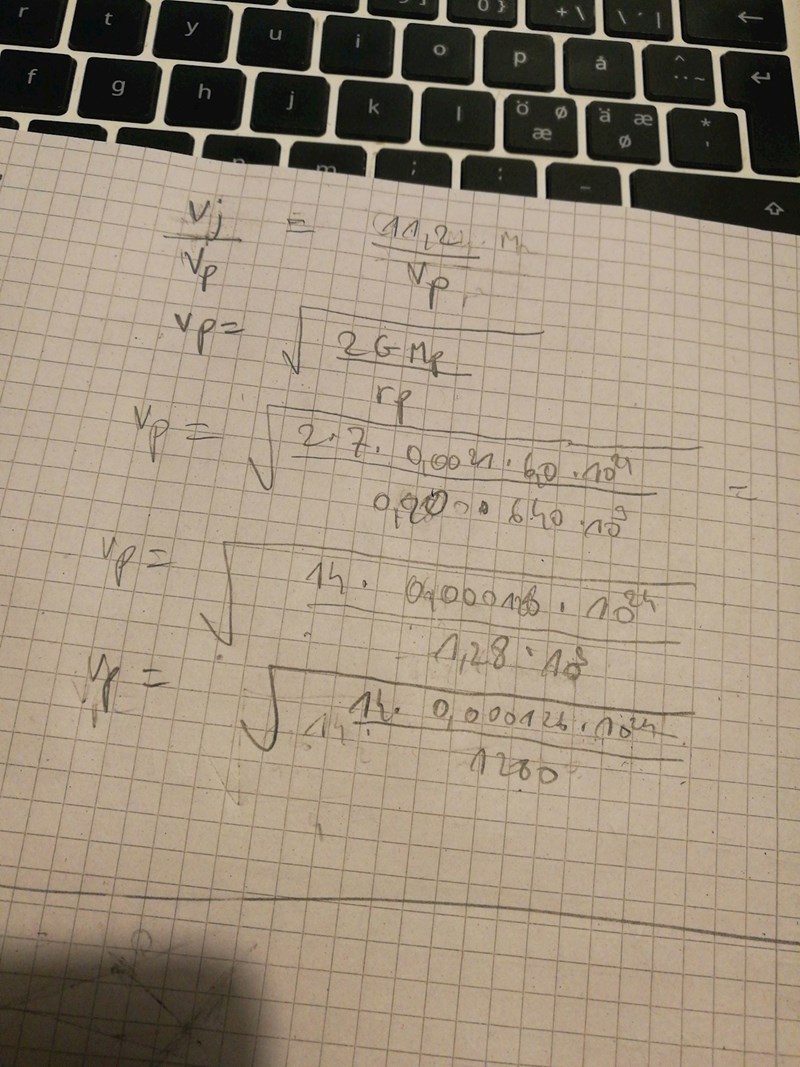 r t y u i o p å ^ ¨ ~ ←
f g h j k l ö ø æ ä æ ø * ' ↵
n m ; : _ ⇧
vj / vp = 11,2 / vp
vp = √(2 G Mp / rp)
vp = √(2 · 7 · 0,0021 · 6,0 · 10^24 / 0,20 · 640 · 10^3) =
vp = √(14 · 0,000126 · 10^24 / 1,28 · 10^3)
vp = √(14 · 0,000126 · 10^24 / 1280)